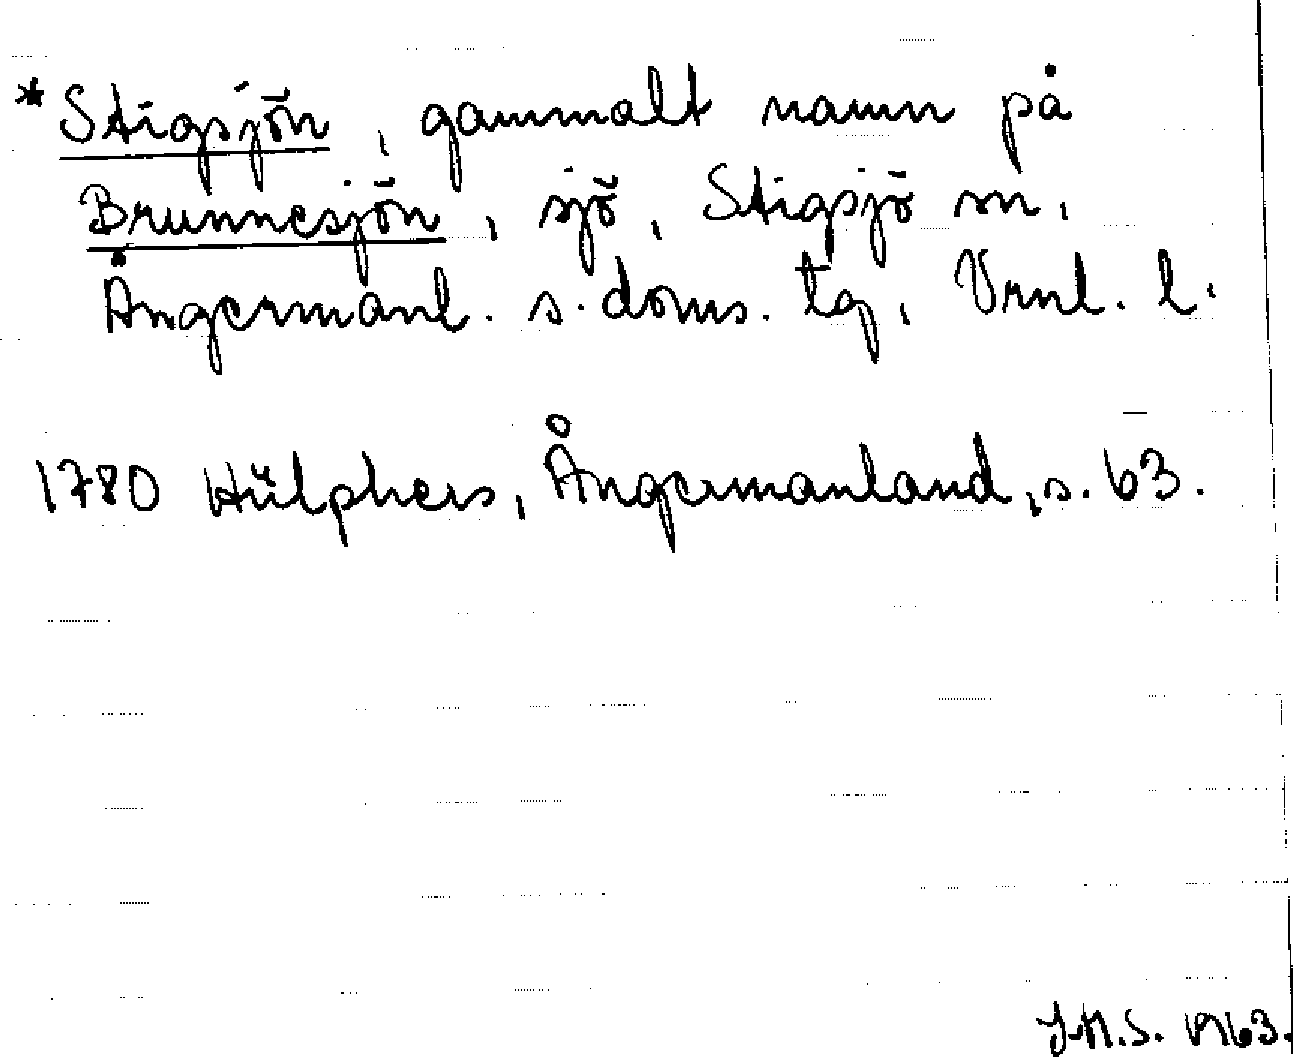 * Stigsjön, gammalt namn på
Brunnesjön, sjö, Stigsjö sn,
Ångermanl. s. doms. tg, Vrnl. l.
1780 Hülphers, Ångermanland, s. 63.
J.H.S. 1963.